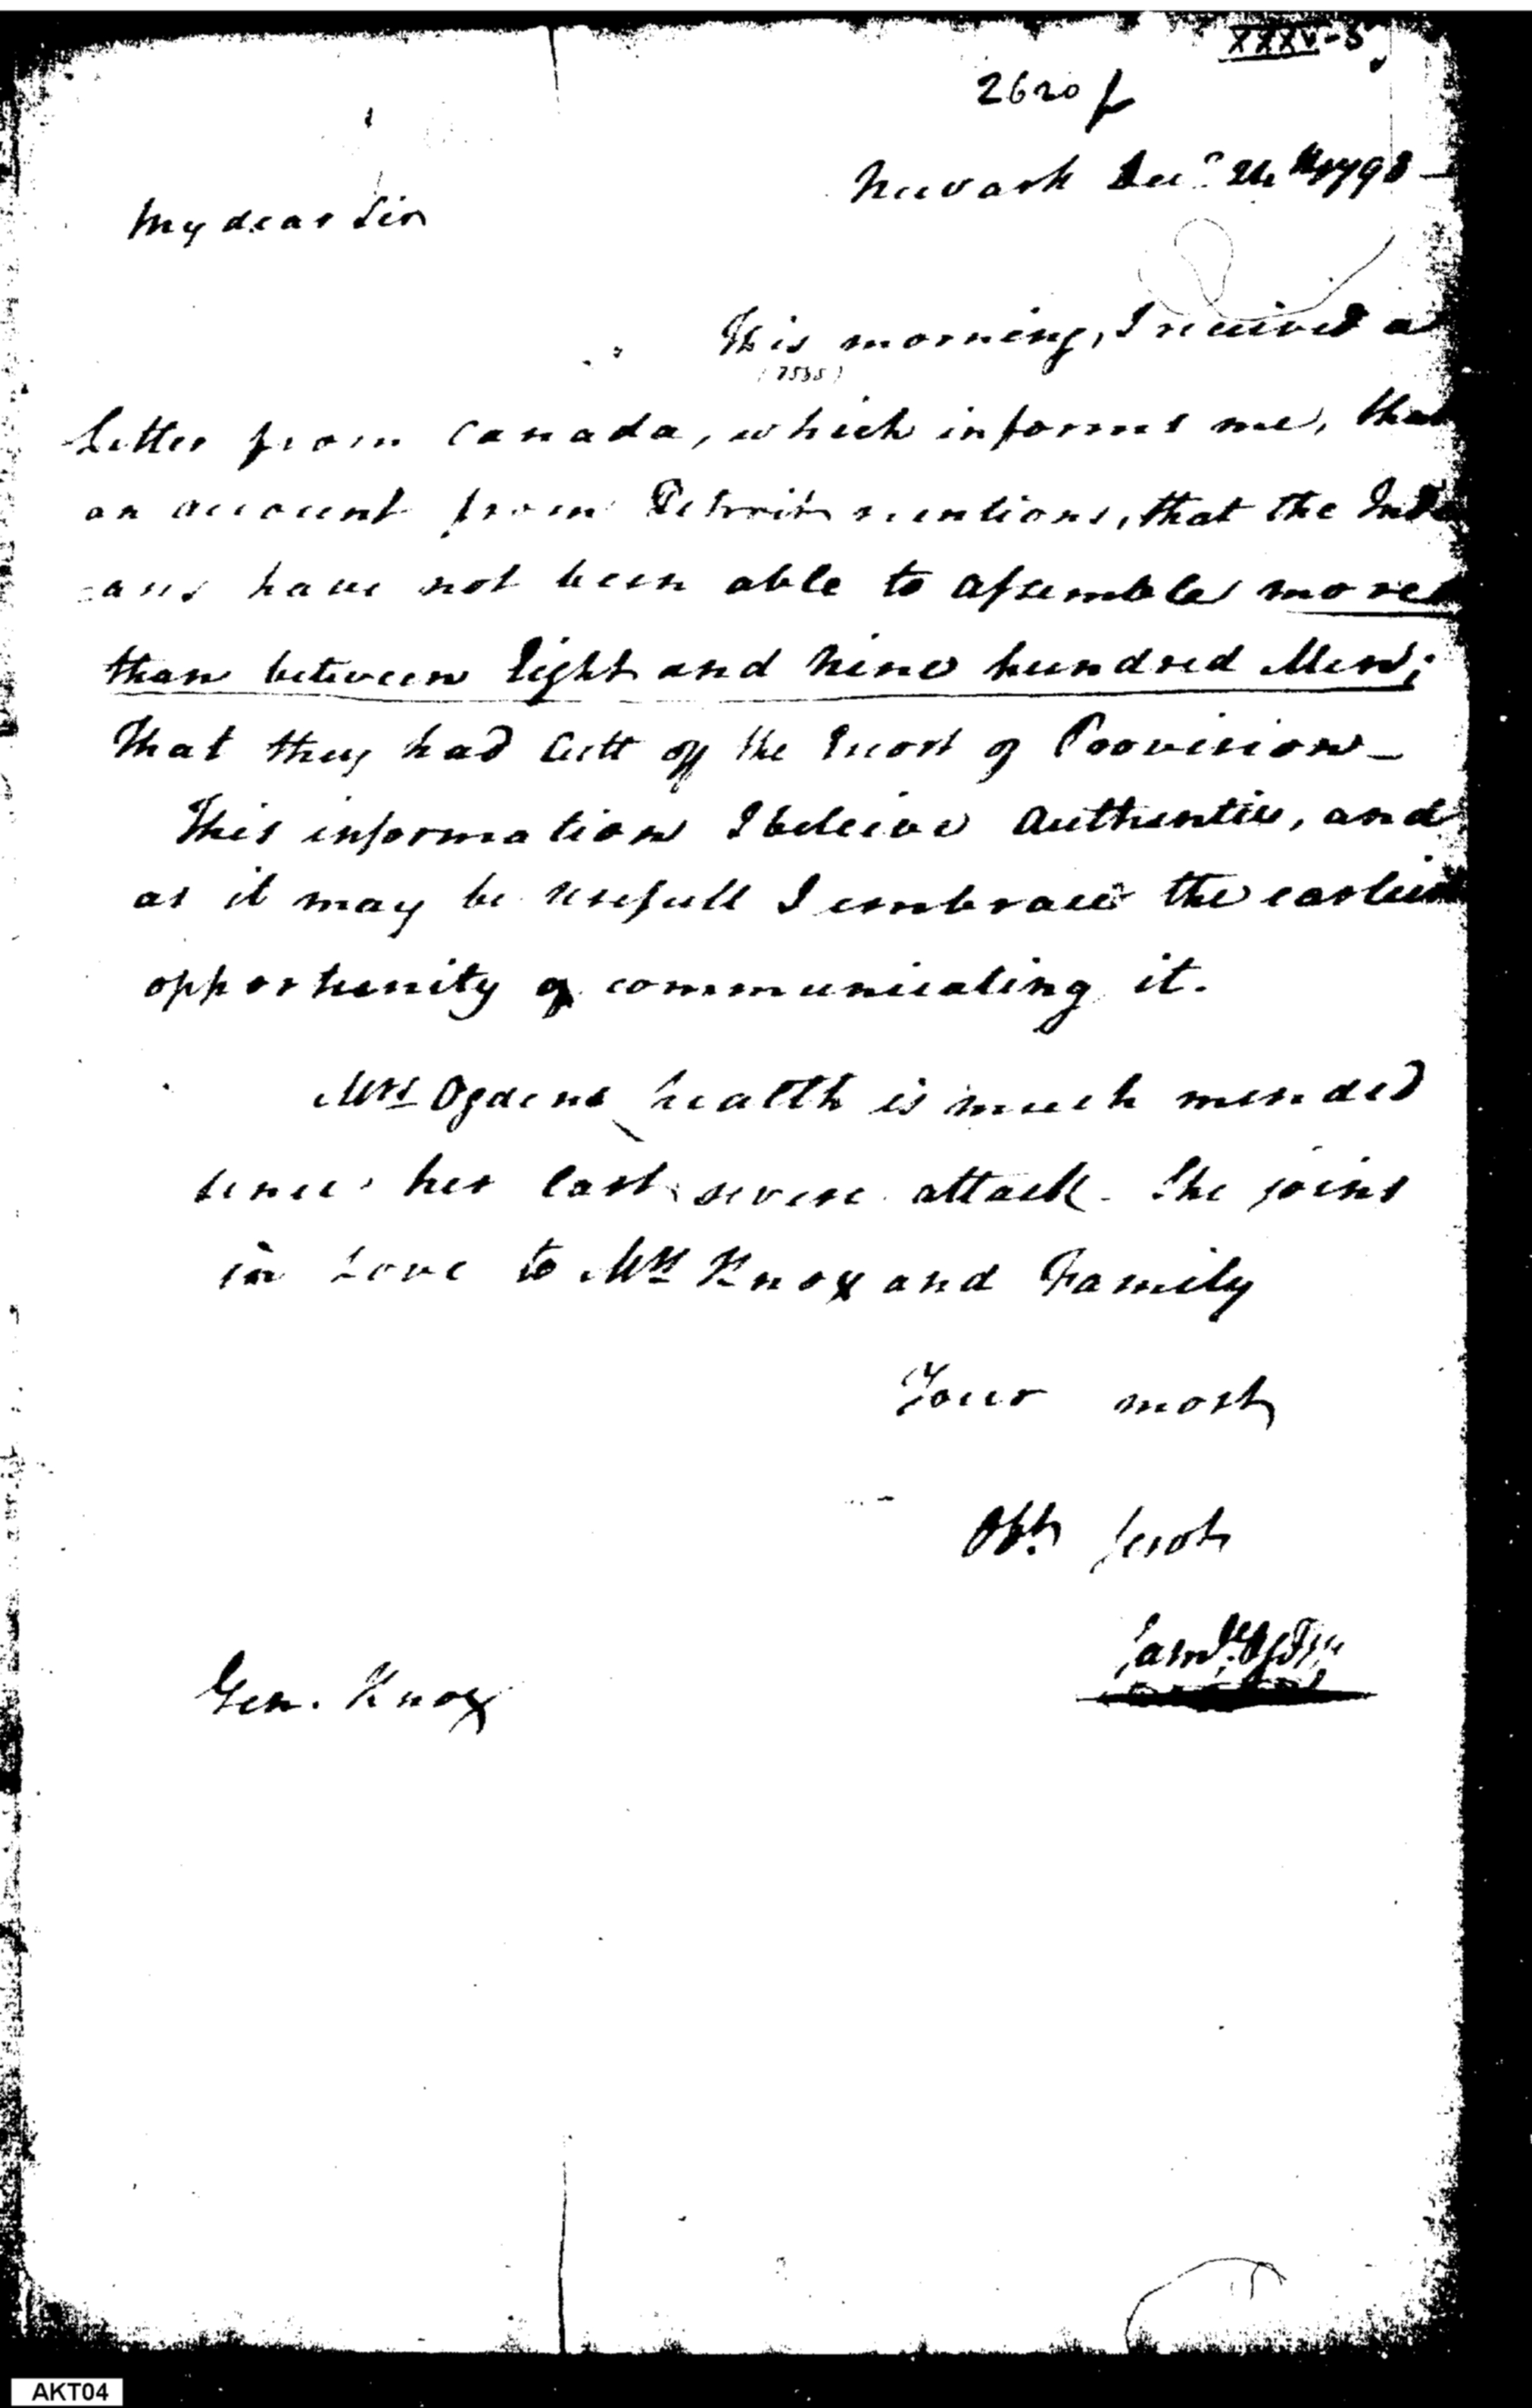 XXXV-5
2620 f
Newark Decr 24th 1793 —
My dear Sir
This morning, I received a
(7535)
Letter from Canada, which informs me, that
an account from Detroit mentions, that the Indi
-ans have not been able to assemble more
than between Eight and Nine hundred Men;
That they had Cutt off the Escort of Provision —
This information I beleive Authentic, and
as it may be usefull I embrace the earliest
opportunity of communicating it.
Mrs Ogdens health is much mended
since her last severe attack. She joins
in Love to Mrs Knox and Family
Your most
Obt. Servt
Saml. Ogden
Gen. Knox
AKT04